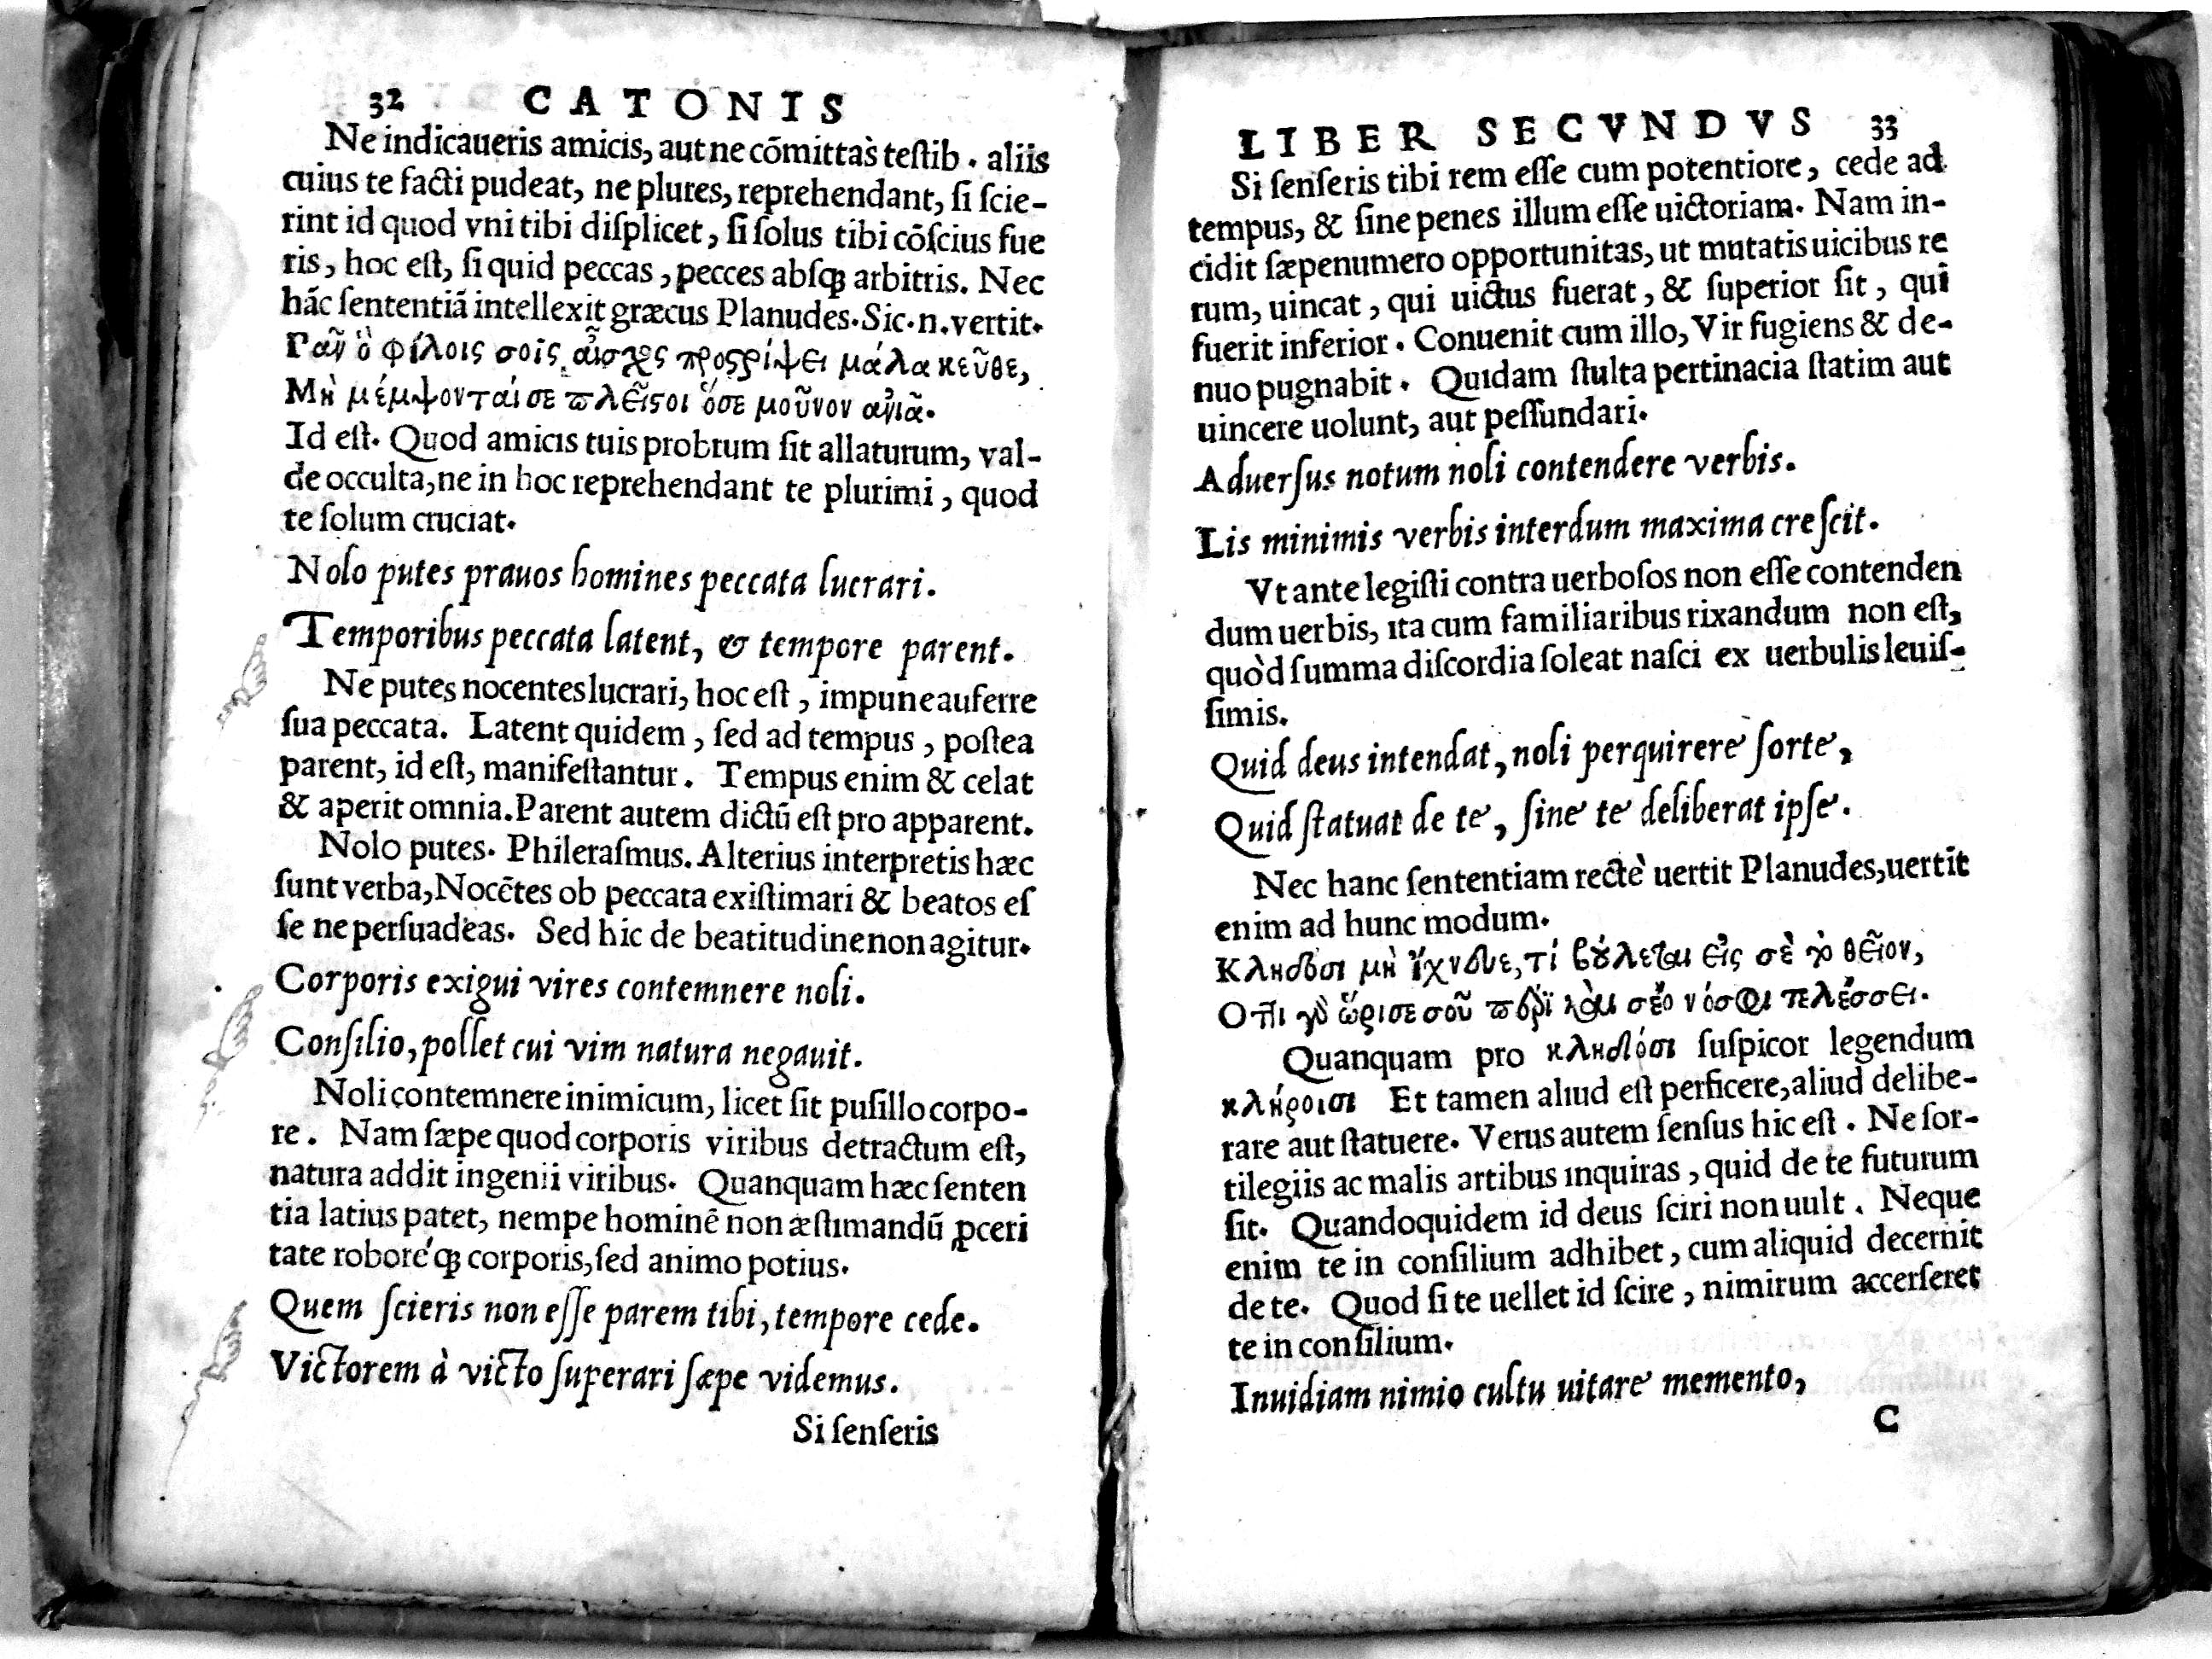 32 CATONIS
Ne indicaueris amicis, aut ne cõmittas testib. aliis
cuius te facti pudeat, ne plures, reprehendant, si scie-
rint id quod vni tibi displicet, si solus tibi cõscius fue
ris, hoc est, si quid peccas, pecces absq; arbitris. Nec
hãc sententiã intellexit græcus Planudes. Sic. n. vertit.
Γᾶν ὃ φίλοις σοῖς αἶσχος προςρίψει μάλα κεῦθε,
Μὴ μέμψονταί σε πλεῖςοι ὅσε μοῦνον ἀνιᾶ.
Id est. Quod amicis tuis probrum sit allaturum, val-
de occulta, ne in hoc reprehendant te plurimi, quod
te solum cruciat.
Nolo putes prauos homines peccata lucrari.
Temporibus peccata latent, & tempore parent.
Ne putes nocentes lucrari, hoc est, impune auferre
sua peccata. Latent quidem, sed ad tempus, postea
parent, id est, manifestantur. Tempus enim & celat
& aperit omnia. Parent autem dictũ est pro apparent.
Nolo putes. Philerasmus. Alterius interpretis hæc
sunt verba, Nocẽtes ob peccata existimari & beatos es
se ne persuadeas. Sed hic de beatitudine non agitur.
Corporis exigui vires contemnere noli.
Consilio, pollet cui vim natura negauit.
Noli contemnere inimicum, licet sit pusillo corpo-
re. Nam sæpe quod corporis viribus detractum est,
natura addit ingenii viribus. Quanquam hæc senten
tia latius patet, nempe hominẽ non æstimandũ ꝓceri
tate robore'q; corporis, sed animo potius.
Quem scieris non esse parem tibi, tempore cede.
Victorem à victo superari sæpe videmus.
Si senseris
LIBER SECVNDVS 33
Si senseris tibi rem esse cum potentiore, cede ad
tempus, & sine penes illum esse uictoriam. Nam in-
cidit sæpenumero opportunitas, ut mutatis uicibus re
rum, uincat, qui uictus fuerat, & superior sit, qui
fuerit inferior. Conuenit cum illo, Vir fugiens & de-
nuo pugnabit. Quidam stulta pertinacia statim aut
uincere uolunt, aut pessundari.
Aduersus notum noli contendere verbis.
Lis minimis verbis interdum maxima crescit.
Vt ante legisti contra uerbosos non esse contenden
dum uerbis, ita cum familiaribus rixandum non est,
quòd summa discordia soleat nasci ex uerbulis leuis-
simis.
Quid deus intendat, noli perquirere sorte,
Quid statuat de te, sine te deliberat ipse.
Nec hanc sententiam rectè uertit Planudes, uertit
enim ad hunc modum.
Κληδόσι μὴ ἴχνευε, τί βούλεται εἰς σὲ τὸ θεῖον,
Οττι γὸ ὥρισε σοῦ περὶ καὶ σέο νόσφι τελέσσει.
Quanquam pro κληδόσι suspicor legendum
κλήροισι Et tamen aliud est perficere, aliud delibe-
rare aut statuere. Verus autem sensus hic est. Ne sor-
tilegiis ac malis artibus inquiras, quid de te futurum
sit. Quandoquidem id deus sciri non uult. Neque
enim te in consilium adhibet, cum aliquid decernit
de te. Quod si te uellet id scire, nimirum accerseret
te in consilium.
Inuidiam nimio cultu uitare memento,
C